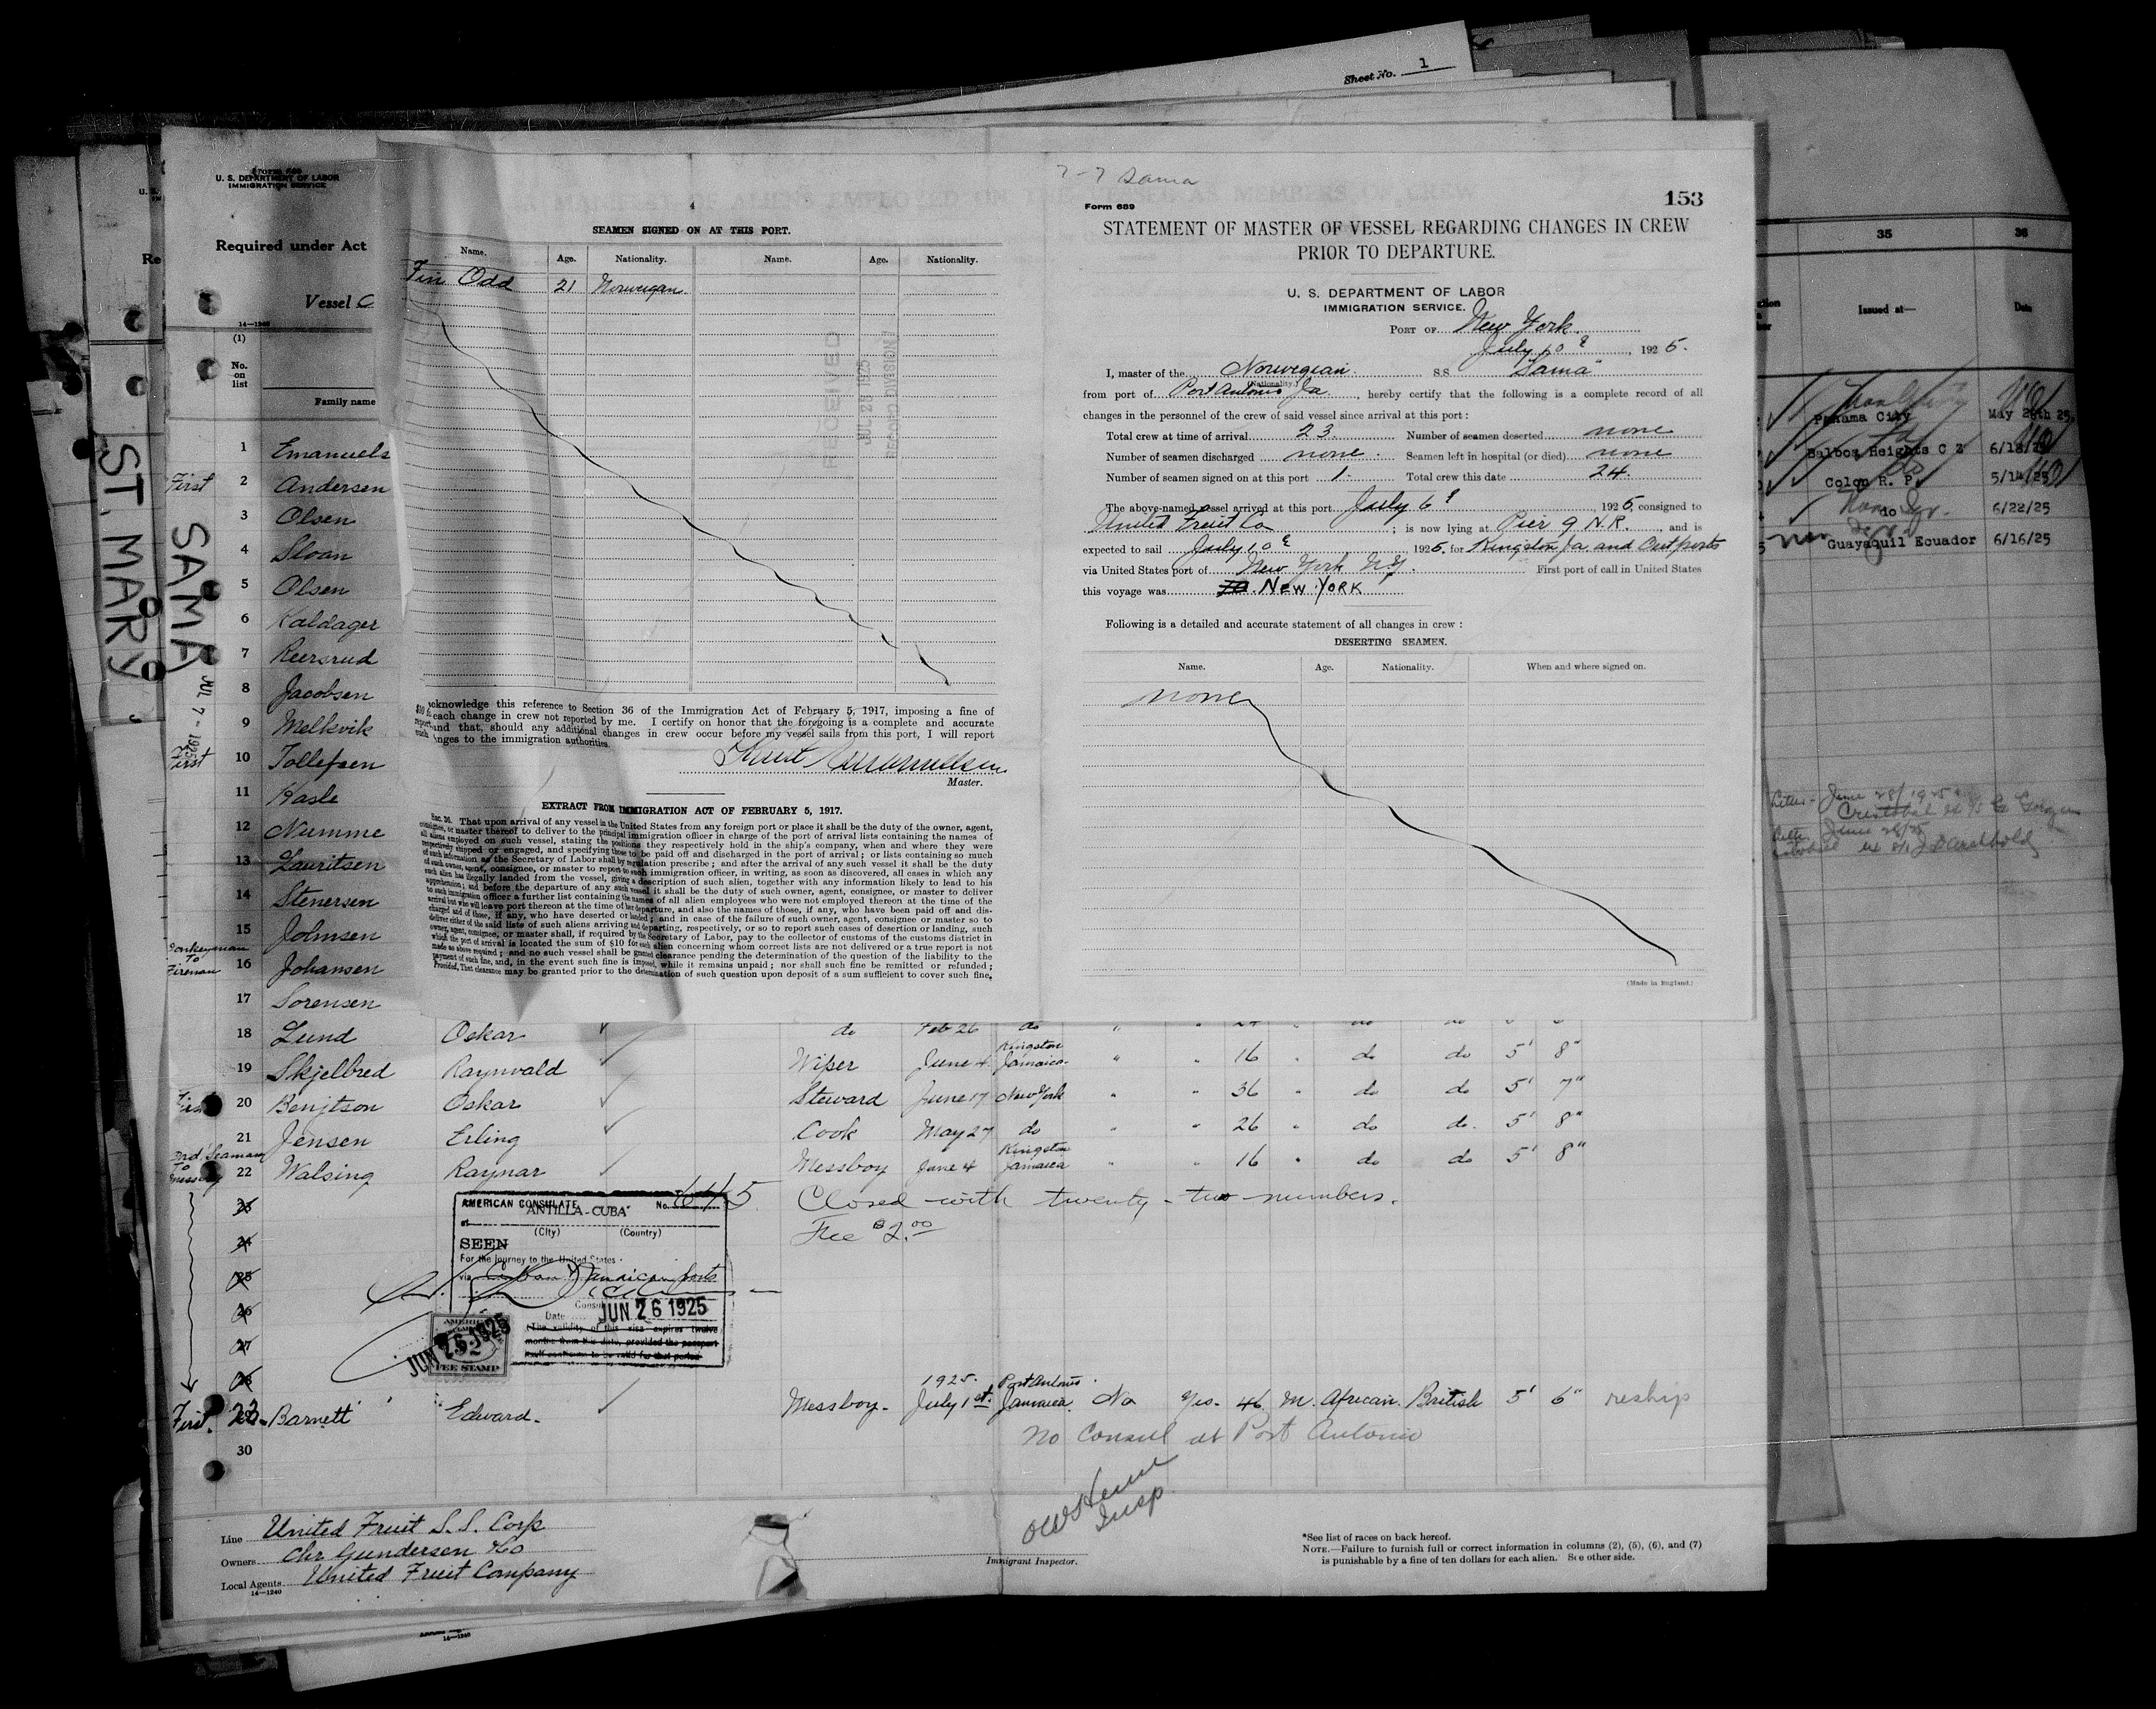 Sheet No. 1
Form 689
U. S. DEPARTMENT OF LABOR
IMMIGRATION SERVICE
Required under Act
Vessel
14—1240
(1)
No.
on
list
Family name
ST. MARY
SAMA
JUL 7 - 1925
1 Emanuels
First 2 Andersen
3 Olsen
4 Sloan
5 Olsen
6 Kaldager
7 Reersrud
8 Jacobsen
9 Melkvik
First 10 Tollefsen
11 Hasle
12 Numme
13 Lauritsen
14 Stenersen
15 Johnsen
Donkeyman
To
Fireman
16 Johansen
17 Sorensen
4
SEAMEN SIGNED ON AT THIS PORT.
Name. Age. Nationality. Name. Age. Nationality.
Fin Odd 21 Norwegian
RECEIVED
JUL 20 1925
acknowledge this reference to Section 36 of the Immigration Act of February 5, 1917, imposing a fine of
$10 for each change in crew not reported by me. I certify on honor that the foregoing is a complete and accurate
report and that, should any additional changes in crew occur before my vessel sails from this port, I will report
such changes to the immigration authorities.
Master.
EXTRACT FROM IMMIGRATION ACT OF FEBRUARY 5, 1917.
Sec. 36. That upon arrival of any vessel in the United States from any foreign port or place it shall be the duty of the owner, agent,
consignee, or master thereof to deliver to the principal immigration officer in charge of the port of arrival lists containing the names of
all aliens employed on such vessel, stating the positions they respectively hold in the ship's company, when and where they were
respectively shipped or engaged, and specifying those to be paid off and discharged in the port of arrival; or lists containing so much
of such information as the Secretary of Labor shall by regulation prescribe; and after the arrival of any such vessel it shall be the duty
of such owner, agent, consignee, or master to report to such immigration officer, in writing, as soon as discovered, all cases in which any
such alien has illegally landed from the vessel, giving a description of such alien, together with any information likely to lead to his
apprehension; and before the departure of any such vessel it shall be the duty of such owner, agent, consignee, or master to deliver
to such immigration officer a further list containing the names of all alien employees who were not employed thereon at the time of the
arrival but who will leave port thereon at the time of her departure, and also the names of those, if any, who have been paid off and dis-
charged and of those, if any, who have deserted or landed; and in case of the failure of such owner, agent, consignee or master so to
deliver either of the said lists of such aliens arriving and departing, respectively, or so to report such cases of desertion or landing, such
owner, agent, consignee, or master shall, if required by the Secretary of Labor, pay to the collector of customs of the customs district in
which the port of arrival is located the sum of $10 for each alien concerning whom correct lists are not delivered or a true report is not
made as above required; and no such vessel shall be granted clearance pending the determination of the question of the liability to the
payment of such fine, and, in the event such fine is imposed, while it remains unpaid; nor shall such fine be remitted or refunded;
Provided, That clearance may be granted prior to the determination of such question upon deposit of a sum sufficient to cover such fine.
7-7 Sama
153
Form 689
STATEMENT OF MASTER OF VESSEL REGARDING CHANGES IN CREW
PRIOR TO DEPARTURE.
U. S. DEPARTMENT OF LABOR
IMMIGRATION SERVICE.
PORT OF New York
July 10th, 1925.
I, master of the Norwegian S.S. "Sama"
(Nationality.)
from port of Port Antonio Ja, hereby certify that the following is a complete record of all
changes in the personnel of the crew of said vessel since arrival at this port:
Total crew at time of arrival 23. Number of seamen deserted none
Number of seamen discharged none. Seamen left in hospital (or died) none
Number of seamen signed on at this port 1. Total crew this date 24.
The above-named vessel arrived at this port July 6th, 1925, consigned to
United Fruit Co; is now lying at Pier 9 N.R., and is
expected to sail July 10th, 1925, for Kingston Ja and Outports
via United States port of New York N.Y. First port of call in United States
this voyage was NEW YORK
Following is a detailed and accurate statement of all changes in crew:
DESERTING SEAMEN.
Name. Age. Nationality. When and where signed on.
none
(Made in England.)
35 36
Issued at— Date
Panama City May 28th 25.
Balboa Heights C Z 6/18/25
Colon R. P. 5/14/25
do 6/22/25
Guayaquil Ecuador 6/16/25
18 Lund Oskar do Feb 26 do
19 Skjelbred Raynvald Wiper June 4 Kingston Jamaica " " 16 " do do 5' 8"
First 20 Benjtson Oskar Steward June 17 New York " " 36 " do do 5' 7"
21 Jensen Erling Cook May 27 do " " 26 " do do. 5' 8"
Ord. Seaman
To
Messboy
22 Walsing Raynar Messboy June 4 Kingston Jamaica " " 16 " do do 5' 8"
23 Closed with twenty-two numbers.
24 Fee $2.00
25
26
27
28
AMERICAN CONSULATE No. 645
at ANTILLA-CUBA
(City) (Country)
SEEN
For the journey to the United States
via Cuban Jamaican ports
Consul
Date JUN 26 1925
The validity of this visa expires twelve
months from this date, provided the passport
itself continues to be valid for that period
JUN 26 1925
FEE STAMP
First. 23 Barnett Edward. Messboy- 1925. July 1st. Port Antonio Jamaica. No Yes- 46 M. African. British 5' 6" reship
No Consul at Port Antonio
30
Insp
Line United Fruit S.S. Corp
Owners Chr Gundersen Co
Local Agents United Fruit Company
14—1240
Immigrant Inspector.
*See list of races on back hereof.
NOTE.—Failure to furnish full or correct information in columns (2), (5), (6), and (7)
is punishable by a fine of ten dollars for each alien. See other side.
14—1240